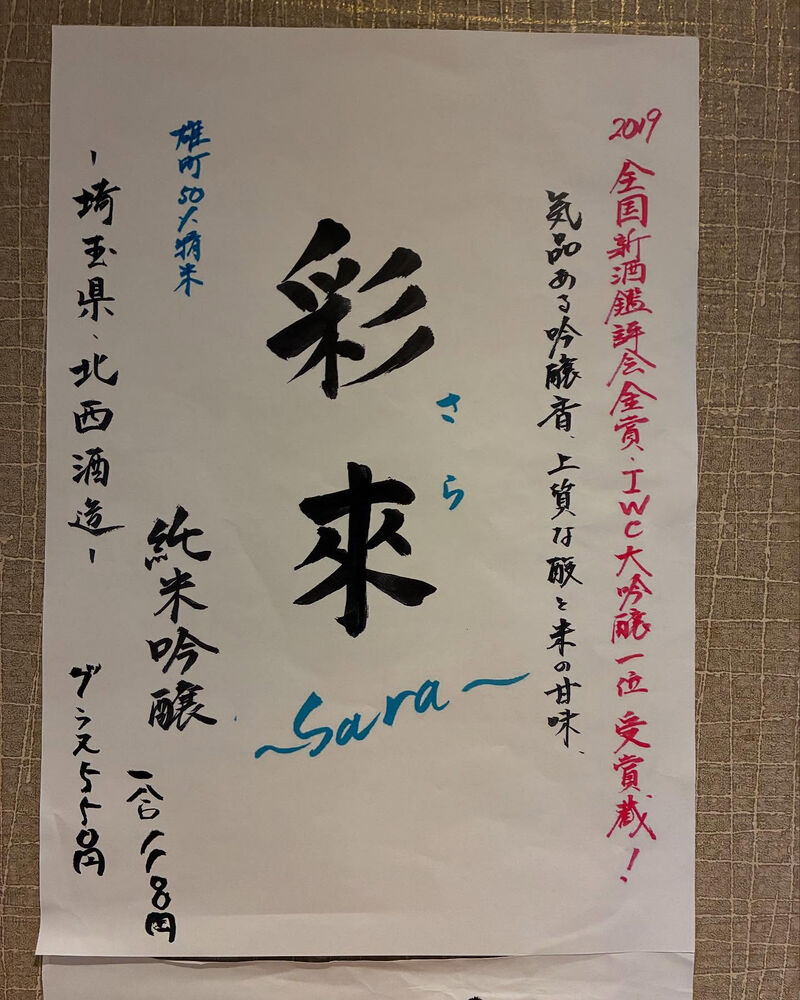 2019 全国新酒鑑評会金賞・IWC大吟醸一位 受賞蔵!
気品ある吟醸香、上質な酸と米の甘味、
さら
彩來
~Sara~
雄町50%精米
純米吟醸
一合
-埼玉県・北西酒造-
グラス550円